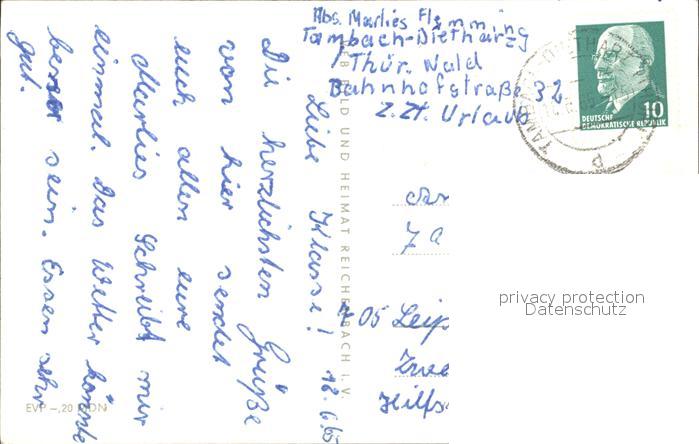 Abs. Marlies Flemming
Tambach-Dietharz
/ Thür. Wald
Bahnhofstraße 32
z. Zt. Urlaub
DEUTSCHE
DEMOKRATISCHE REPUBLIK
10
Liebe Klasse! 18.6.65
Die herzlichsten Grüße
von hier sendet
euch allen eure
Marlies Schreibt mir
einmal. Das Wetter könnte
besser sein. Essen sehr
gut.
BILD UND HEIMAT REICHENBACH I. V.
EVP –,20 MDN
An
7a
705 Leip
Hilfs
privacy protection
Datenschutz